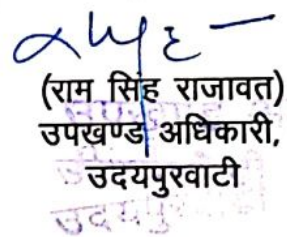 (राम सिंह राजावत)
उपखण्ड अधिकारी,
उदयपुरवाटी